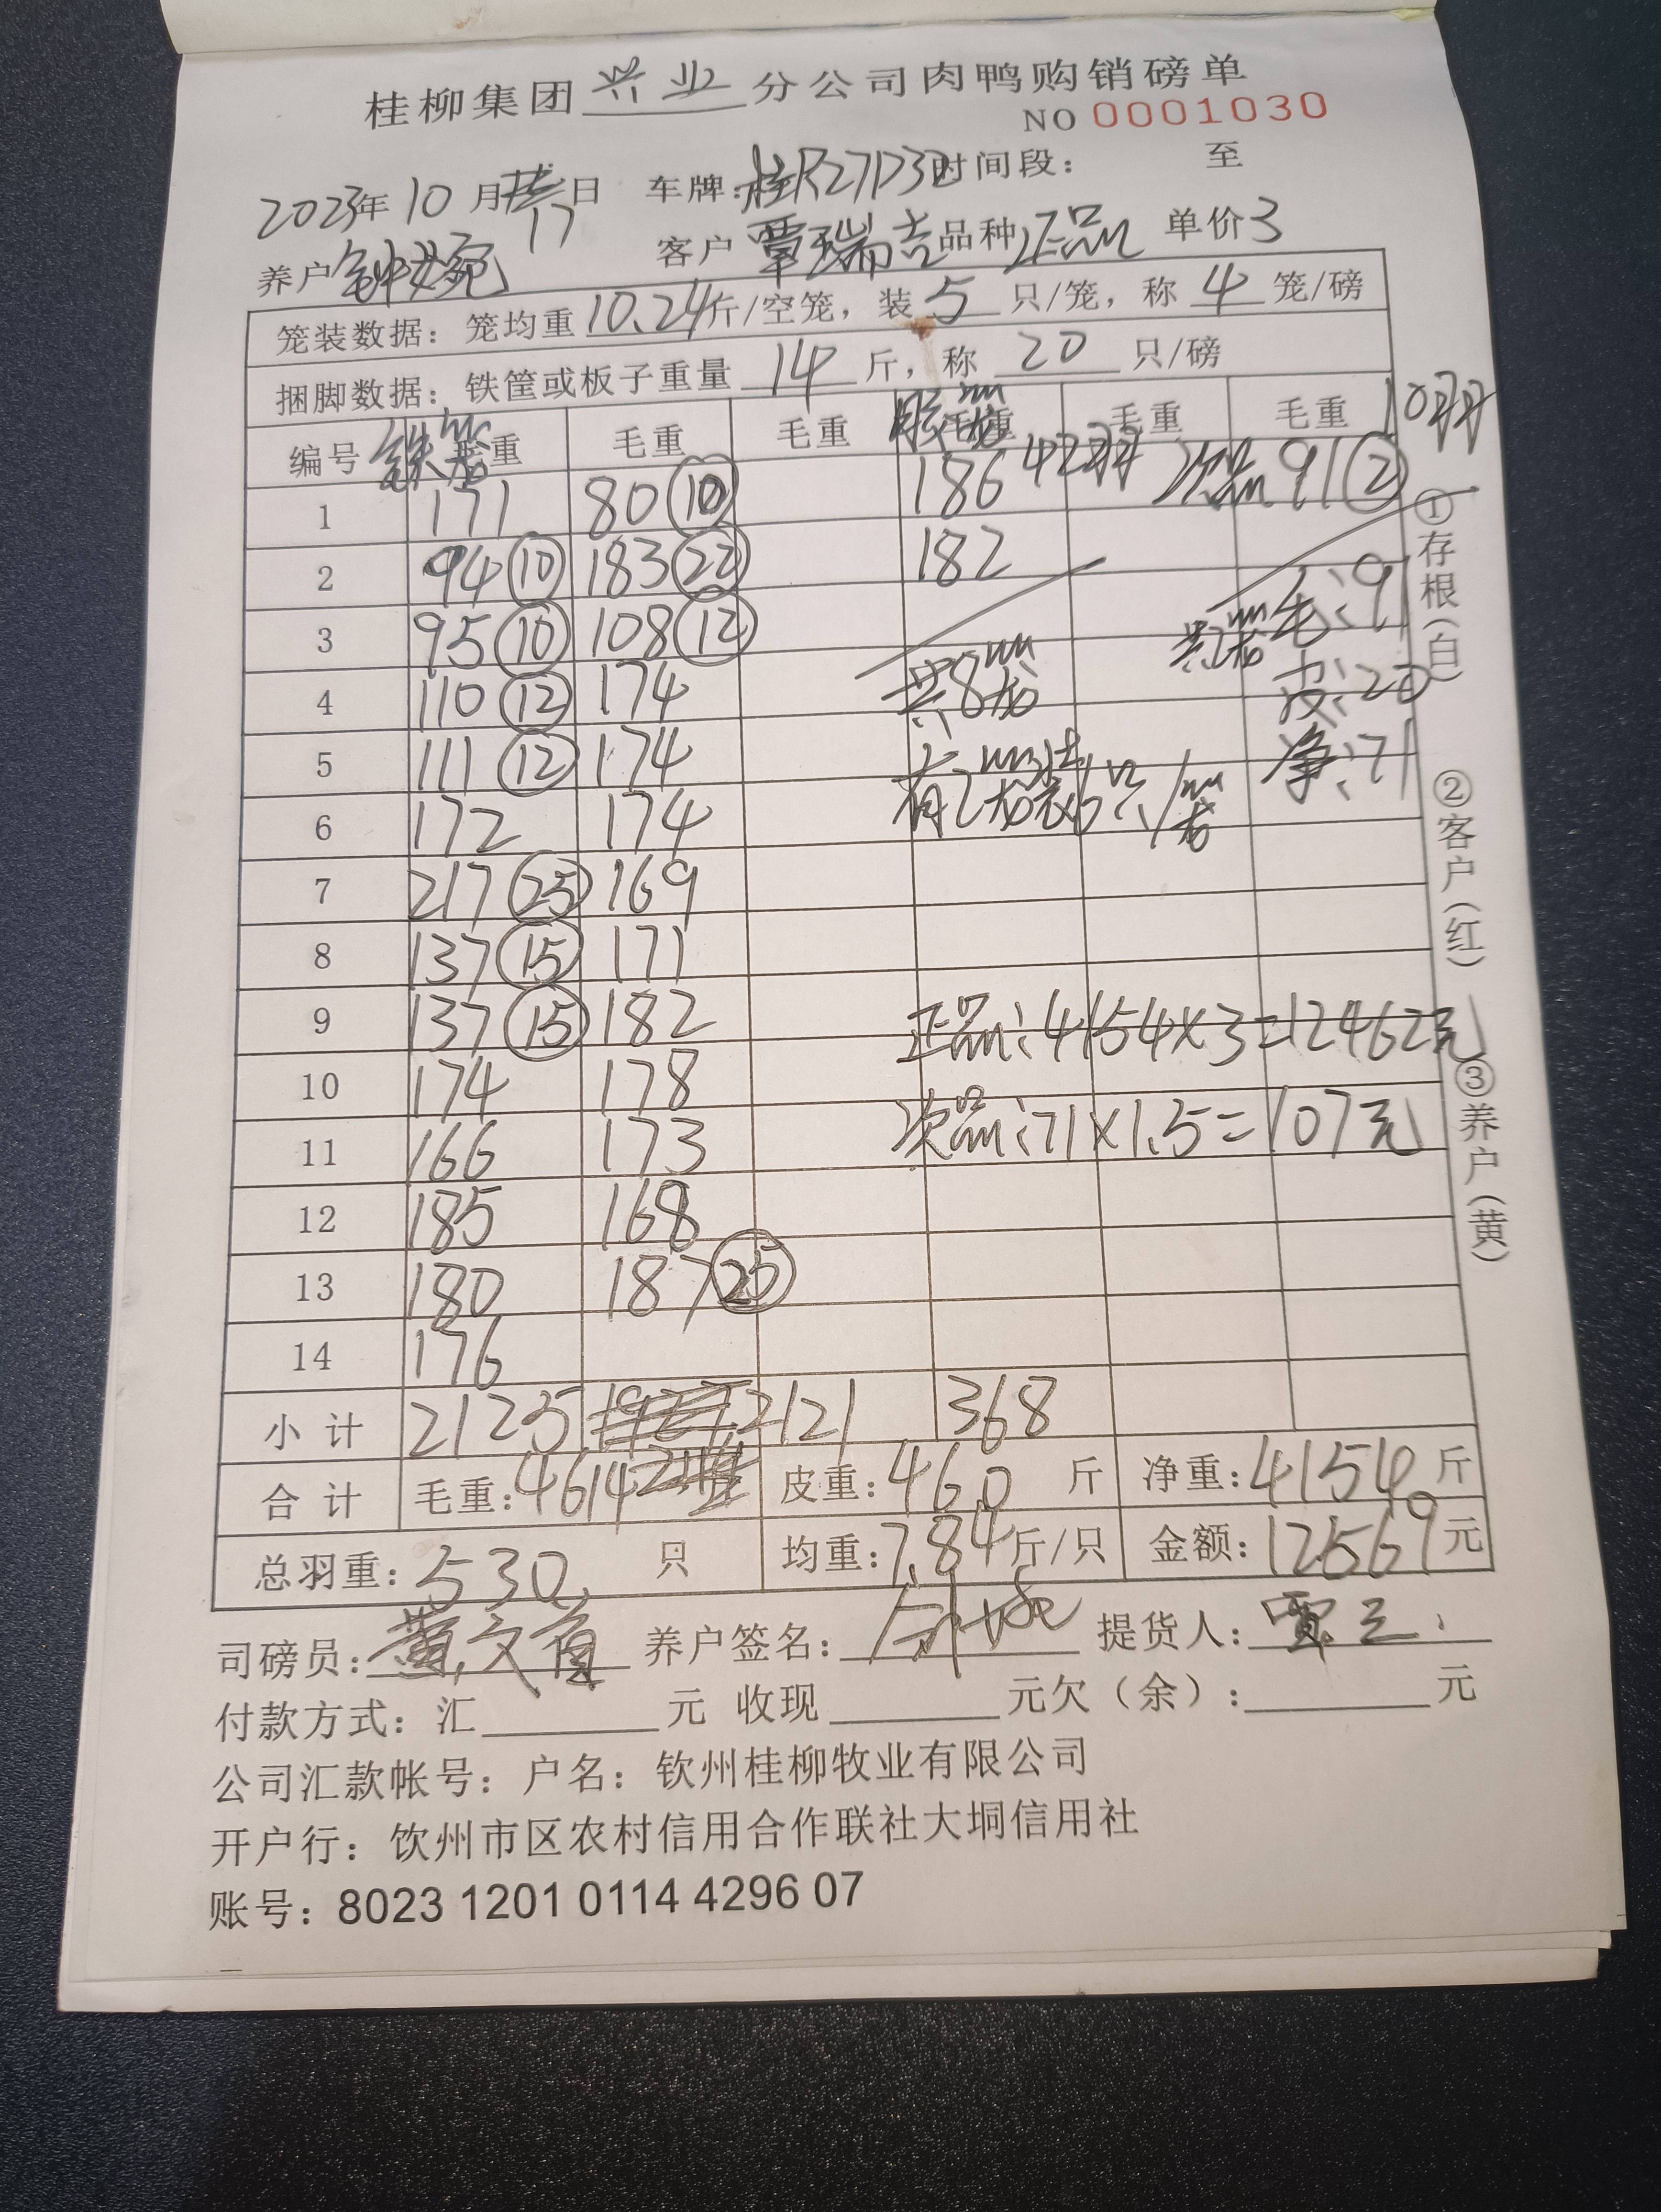 桂柳集团兴业分公司肉鸭购销磅单
NO 0001030
2023年10月17日 车牌:桂R27D32时间段: 至
养户 客户 覃瑞吉 品种 正品 单价3
笼装数据: 笼均重10.24斤/空笼, 装5只/笼, 称4笼/磅
捆脚数据: 铁筐或板子重量14斤, 称20只/磅
编号 铁笼 毛重 毛重 毛重 胶笼 毛重 毛重 毛重 10羽
1 171 80⑩ 186 42羽 次品91②
2 94⑩ 183㉒ 182
3 95⑩ 108⑫ 共2笼 毛:91
4 110⑫ 174 共8笼 皮:20
5 111⑫ 174 有2笼装6只/笼 净:71
6 172 174
7 217㉕ 169
8 137⑮ 171
9 137⑮ 182 正品:4154×3=12462元
10 174 178
11 166 173 次品:71×1.5=107元
12 185 168
13 180 187㉕
14 176
小计 2125 2121 368
合计 毛重:4614 皮重:460斤 净重:4154斤
总羽重:530只 均重:7.84斤/只 金额:12569元
司磅员:黄文首 养户签名: 提货人:
付款方式: 汇 元 收现 元欠(余): 元
公司汇款帐号: 户名: 钦州桂柳牧业有限公司
开户行: 钦州市区农村信用合作联社大垌信用社
账号: 8023 1201 0114 4296 07
①存根(白)
②客户(红)
③养户(黄)